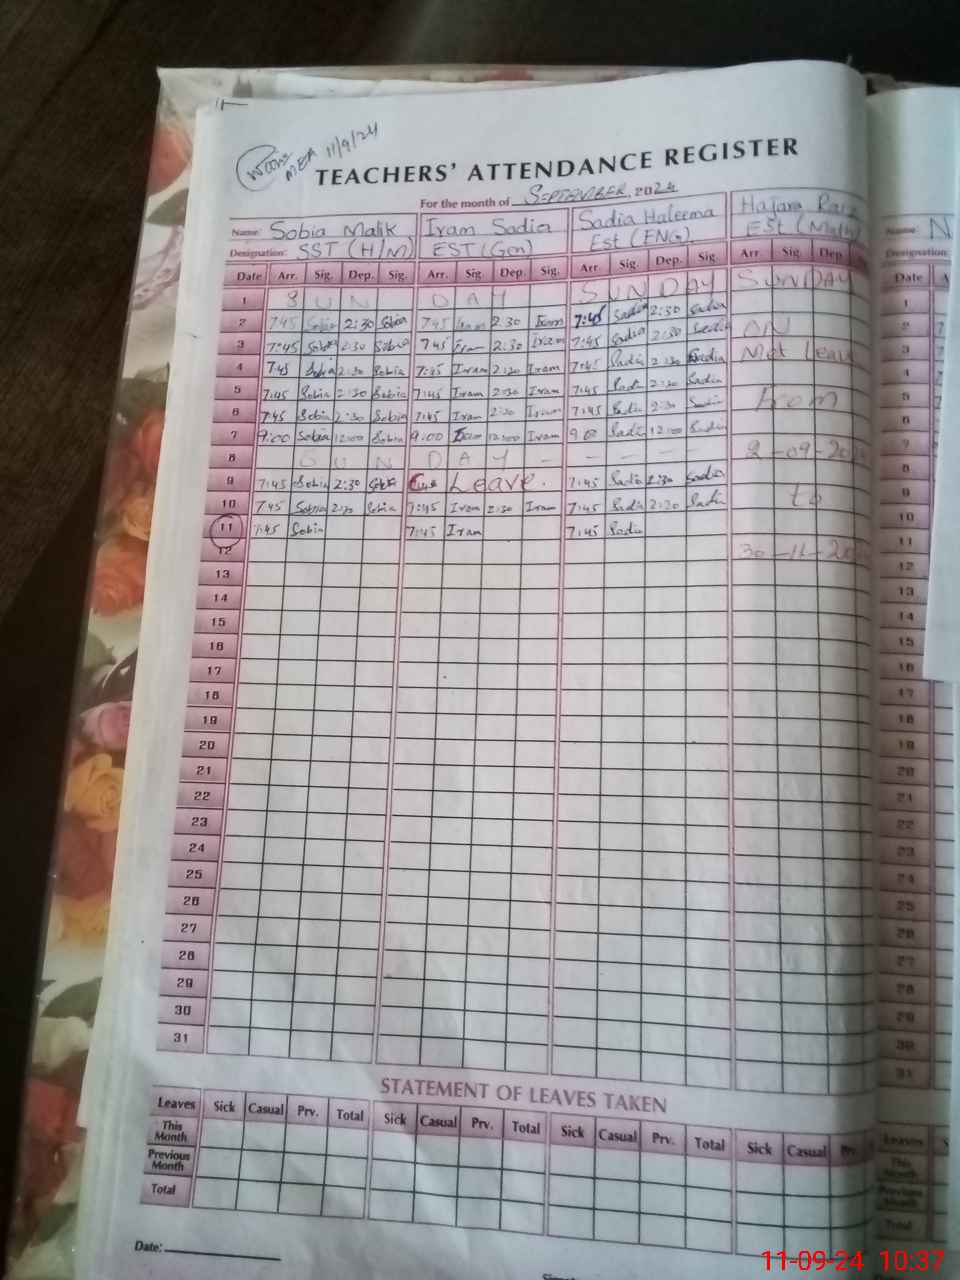 MEA 11/9/24
TEACHERS' ATTENDANCE REGISTER
For the month of SEPTEMBER, 2024
Name: Sobia Malik Iram Sadia Sadia Haleema Hajara
Designation: SST (H/M) EST (Gen) Est (ENG) ESt (Math)
Date Arr. Sig. Dep. Sig. Arr. Sig. Dep. Sig. Arr Sig. Dep. Sig. Arr. Sig. Dep
1 SUN DAY SUNDAY SUNDAY
2 7:45 Sobia 2:30 Sobia 7:45 Iram 2:30 Iram 7:45 Sadia 2:30 Sadia
3 7:45 Sobia 2:30 Sobia 7:45 Iram 2:30 Iram 7:45 Sadia 2:30 Sadia ON
4 7:45 Sobia 2:30 Sobia 7:45 Iram 2:30 Iram 7:45 Sadia 2:30 Sadia Met Leav
5 7:45 Sobia 2:30 Sobia 7:45 Iram 2:30 Iram 7:45 Sadi 2:30 Sadia
6 7:45 Sobia 2:30 Sobia 7:45 Iram 2:30 Iram 7:45 Sadia 2:30 Sadia From
7 9:00 Sobia 12:00 Sobia 9:00 Iram 12:00 Iram 9:00 Sadi 12:00 Sadia
8 SUN DAY - - - - - 2-09-20
9 7:45 Sobia 2:30 Sobia Leave. 7:45 Sadia 2:30 Sadia
10 7:45 Sobia 2:30 Sobia 7:45 Iram 2:30 Iram 7:45 Sadia 2:30 Sadia to
11 7:45 Sobia 7:45 Iram 7:45 Sadia
12 30-11-20
13
14
15
16
17
18
19
20
21
22
23
24
25
26
27
28
29
30
31
STATEMENT OF LEAVES TAKEN
Leaves Sick Casual Prv. Total Sick Casual Prv. Total Sick Casual Prv. Total Sick Casual
This Month
Previous Month
Total
Date:
Name: N
Designation
Date A
1
2
3
4
5
6
7
8
9
10
11
12
13
14
15
16
17
18
19
20
21
22
23
24
25
26
27
28
29
30
31
Leaves S
This Month
Previous Month
Total
11-09-24 10:37